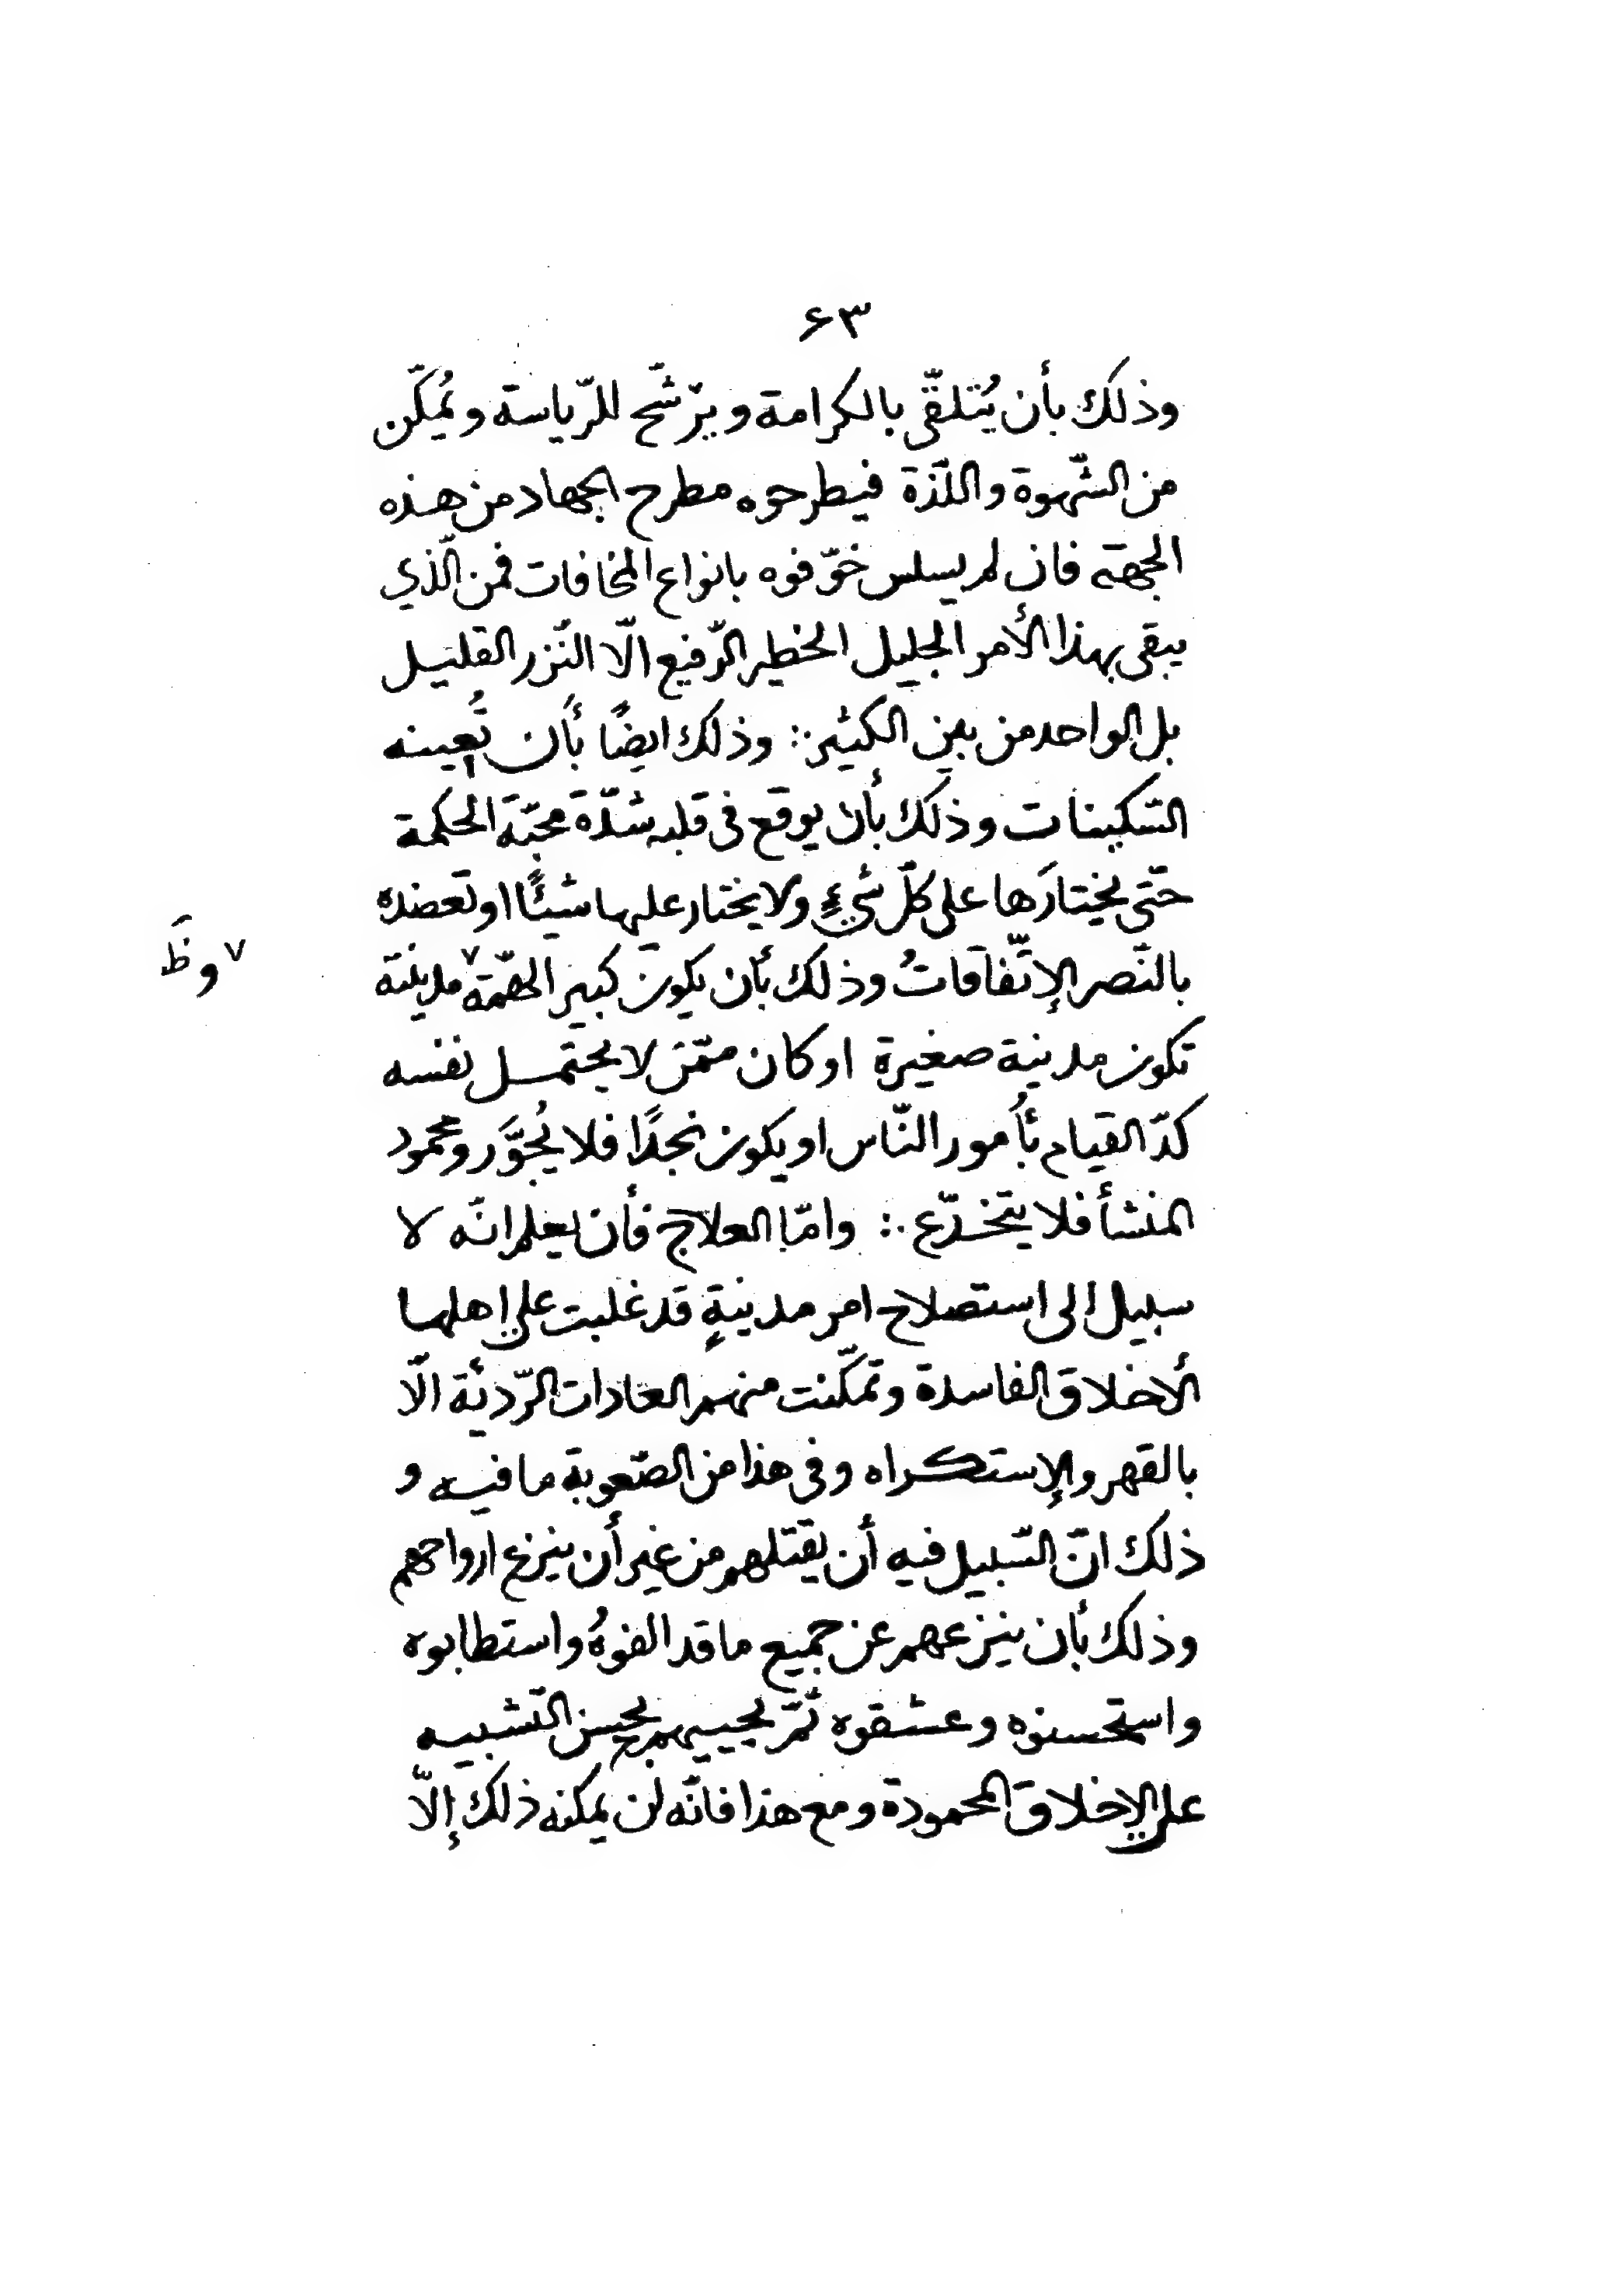 ۶۳
وذلك بأن يُتلقّى بالكرامة ويرّشح للرّياسة ويُمكّن
من الشّهوة واللّذة فيطرحوه مطرح الجهاد من هذه
الجهة فان لم يسلس خوّفوه بانواع المخافات فمن الّذي
يبقى بهذا الأمر الجليل الخطير الرّفيع الّا النّزر القليل
بل الواحد من بين الكثير ∴ وذلك ايضًا بأن تُعينه
التسكينات وذلك بأن يوقع فى قلبه شدّة محبّة الحكمة
حتّى يختارَها على كلّ شيءٍ ولا يختار عليها شيئًا او تعضده
بالنّصر الإتّفاقاتُ وذلك بأن يكون كبير الهمّة ٧ مدينته
٧ وظَ
تكون مدينة صغيرة او كان ممّن لا يحتمل نفسه
كدّ القيام بأمور النّاس او يكون نجدًا فلا يُجوَّر ومحمود
المنشأ فلا يتخدّع ∴ وامّا العلاج فأن يعلم انّه لا
سبيل الى استصلاح امر مدينةٍ قد غلبت على اهلها
الأخلاق الفاسدة وتمكّنت منهم العادات الرّديئة الّا
بالقهر والإستكراه وفى هذا من الصّعوبة ما فيه و
ذلك انّ السّبيل فيه أن يقتلهم من غير أن ينزع ارواحهم
وذلك بأن ينزعهم عن جميع ما قد الفوهُ واستطابوه
واستحسنوه وعشقوه ثمّ يحييهم بحسن التّشبيه
على الإخلاق المحمودة ومع هذا فانّه لن يمكنه ذلك إلّا